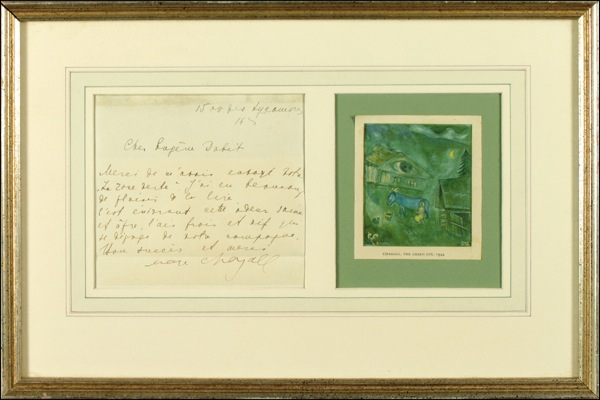 15 av des Sycomores
16
Cher Eugène Dabit
Merci de m'avoir envoyé votre
"La Zone verte" J'ai eu beaucoup
de plaisir à la lire
C'est enivrant cette odeur saine
et âpre, l'air frais et vif qui
se dégage de votre campagne.
Bon succès et merci.
Marc Chagall
CHAGALL, THE GREEN EYE, 1944